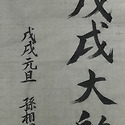 戊戌大
戊戌元旦 孫相